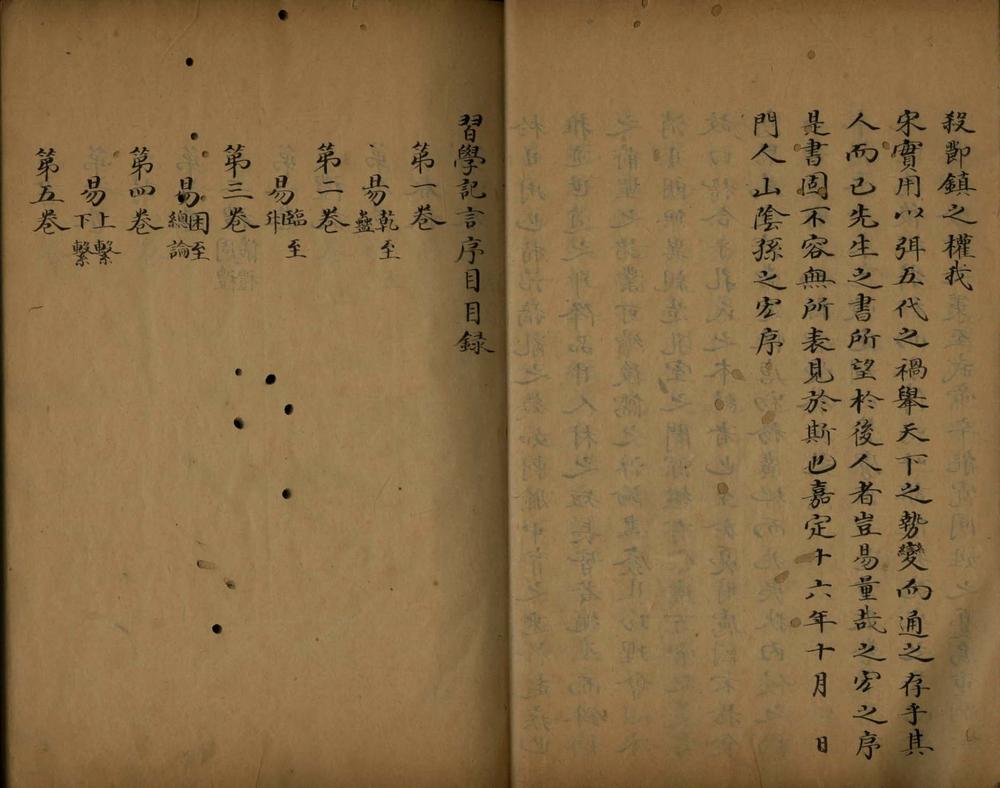 殺鄼鎮之權我
宋實用以弭五代之禍舉天下之勢變而通之存乎其
人而已先生之書所望於後人者豈易量哉之宏之序
是書固不容無所表見於斯也嘉定十六年十月　日
門人山陰孫之宏序
習學記言序目目録
第一卷
易乾至蠱
第二卷
易臨至升
第三卷
易困至總論
第四卷
易上繫下繫
第五卷